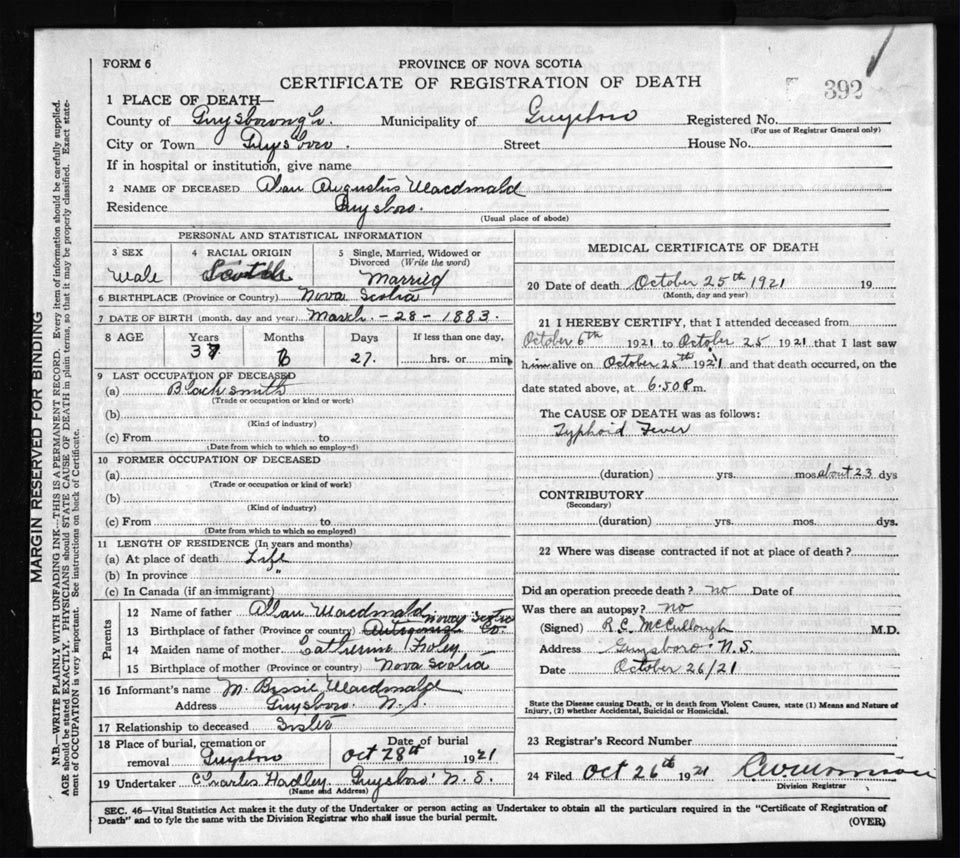 FORM 6
PROVINCE OF NOVA SCOTIA
CERTIFICATE OF REGISTRATION OF DEATH
392
1 PLACE OF DEATH—
County of Guysborough. Municipality of Guysboro Registered No.
(For use of Registrar General only)
City or Town Guysboro. Street House No.
If in hospital or institution, give name
2 NAME OF DECEASED Alan Augustus Macdonald
Residence Guysboro.
(Usual place of abode)
PERSONAL AND STATISTICAL INFORMATION
3 SEX 4 RACIAL ORIGIN 5 Single, Married, Widowed or
Divorced (Write the word)
Male Scotch Married
6 BIRTHPLACE (Province or Country) Nova Scotia
7 DATE OF BIRTH (month, day and year) March - 28 - 1883.
8 AGE Years Months Days If less than one day,
6 27. hrs. or min.
9 LAST OCCUPATION OF DECEASED
(a) Blacksmith
(Trade or occupation or kind or work)
(b)
(Kind of industry)
(c) From to
(Date from which to which so employed)
10 FORMER OCCUPATION OF DECEASED
(a)
(Trade or occupation or kind of work)
(b)
(Kind of industry)
(c) From to
(Date from which to which so employed)
11 LENGTH OF RESIDENCE (In years and months)
(a) At place of death Life
(b) In province "
(c) In Canada (if an immigrant)
Parents
12 Name of father Allan Macdonald
13 Birthplace of father (Province or country) Antigonish Co. Nova Scotia
14 Maiden name of mother Catherine Foley
15 Birthplace of mother (Province or country) Nova Scotia
16 Informant's name M. Bessie Macdonald
Address Guysboro. N.S.
17 Relationship to deceased Sister
18 Place of burial, cremation or Date of burial
removal Guysboro Oct 28th 1921
19 Undertaker Charles Hadley, Guysboro' N.S.
(Name and Address)
MEDICAL CERTIFICATE OF DEATH
20 Date of death October 25th 1921 19
(Month, day and year)
21 I HEREBY CERTIFY, that I attended deceased from
October 6th 1921 to October 25 1921 that I last saw
him alive on October 25th 1921 and that death occurred, on the
date stated above, at 6.50 P.m.
The CAUSE OF DEATH was as follows:
Typhoid Fever
(duration) yrs. mos. about 23 dys
CONTRIBUTORY
(Secondary)
(duration) yrs. mos. dys.
22 Where was disease contracted if not at place of death?
Did an operation precede death? no Date of
Was there an autopsy? no
(Signed) R.C. McCullough M.D.
Address Guysboro' N.S.
Date October 26/21
State the Disease causing Death, or in death from Violent Causes, state (1) Means and Nature of
Injury, (2) whether Accidental, Suicidal or Homicidal.
23 Registrar's Record Number
24 Filed Oct 26th 1921
Division Registrar
SEC. 46—Vital Statistics Act makes it the duty of the Undertaker or person acting as Undertaker to obtain all the particulars required in the "Certificate of Registration of
Death" and to fyle the same with the Division Registrar who shall issue the burial permit.
(OVER)
MARGIN RESERVED FOR BINDING
N.B.—WRITE PLAINLY WITH UNFADING INK—THIS IS A PERMANENT RECORD. Every item of information should be carefully supplied.
AGE should be stated EXACTLY. PHYSICIANS should STATE CAUSE OF DEATH in plain terms, so that it may be properly classified. Exact state-
ment of OCCUPATION is very important. See instructions on back of Certificate.